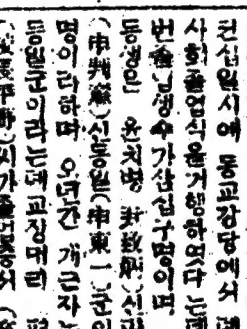 전십일시에 동교강당에서
사회졸업식을거행하엿다는데
번졸업생수가삼십구명이며
동생은 윤치병 신
(申判)신동일(申東一)군
명이라하며 오년간 개근자는
동일군이라는데교장대리
씨가졸업증서